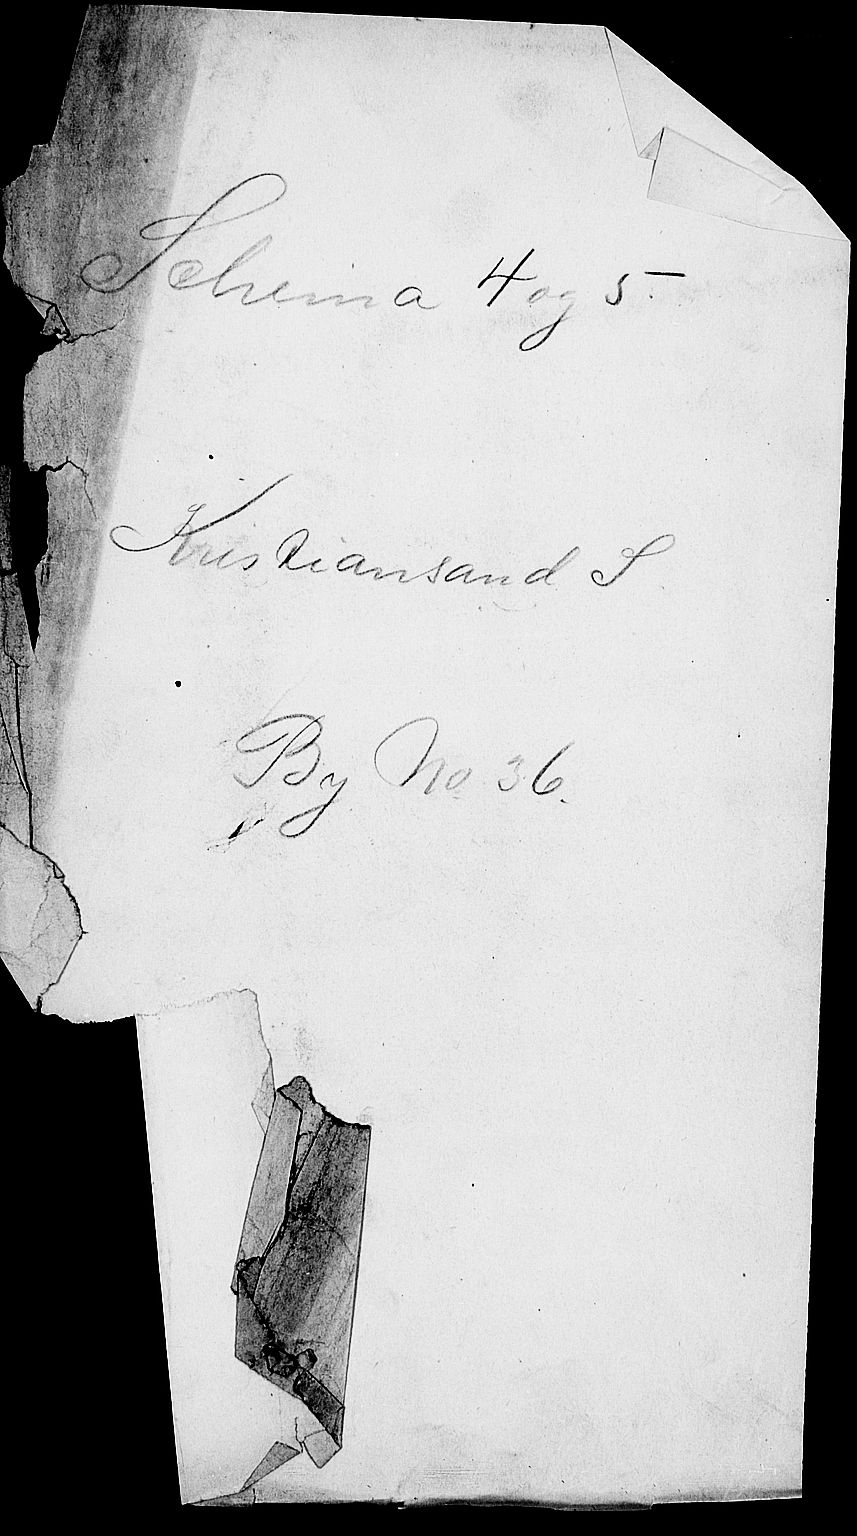 Schema 4 og 5.
Kristiansand S
By No 36.